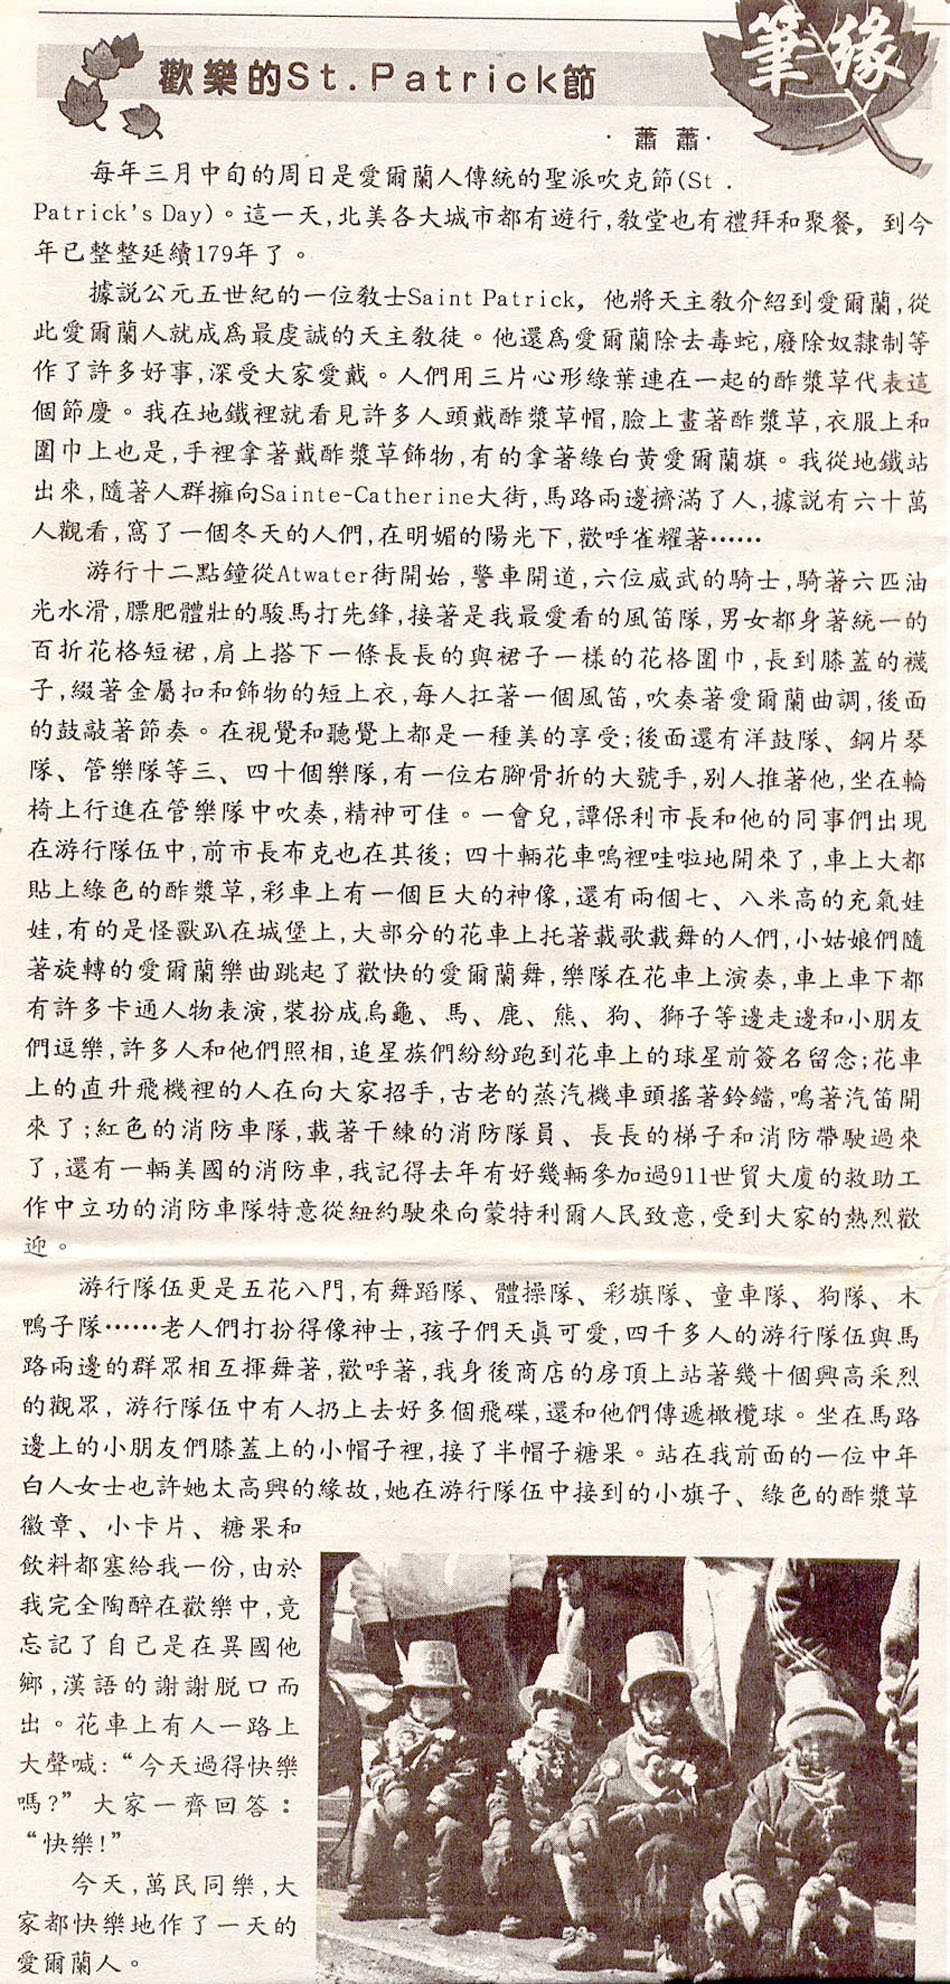 筆緣
歡樂的St.Patrick節
·蕭蕭·
每年三月中旬的周日是愛爾蘭人傳統的聖派吹克節(St .
Patrick's Day)。這一天,北美各大城市都有遊行,教堂也有禮拜和聚餐，到今
年已整整延續179年了。
據説公元五世紀的一位教士Saint Patrick，他將天主教介紹到愛爾蘭,從
此愛爾蘭人就成爲最虔誠的天主教徒。他還爲愛爾蘭除去毒蛇,廢除奴隸制等
作了許多好事,深受大家愛戴。人們用三片心形綠葉連在一起的酢漿草代表這
個節慶。我在地鐵裡就看見許多人頭戴酢漿草帽,臉上畫著酢漿草,衣服上和
圍巾上也是,手裡拿著戴酢漿草飾物,有的拿著綠白黄愛爾蘭旗。我從地鐵站
出來,隨著人群擁向Sainte-Catherine大街,馬路兩邊擠滿了人,據説有六十萬
人觀看,窩了一個冬天的人們,在明媚的陽光下,歡呼雀耀著……
游行十二點鐘從Atwater街開始,警車開道,六位威武的騎士,騎著六匹油
光水滑,膘肥體壯的駿馬打先鋒,接著是我最愛看的風笛隊,男女都身著統一的
百折花格短裙,肩上搭下一條長長的與裙子一樣的花格圍巾,長到膝蓋的襪
子,綴著金屬扣和飾物的短上衣,每人扛著一個風笛,吹奏著愛爾蘭曲調,後面
的鼓敲著節奏。在視覺和聽覺上都是一種美的享受;後面還有洋鼓隊、鋼片琴
隊、管樂隊等三、四十個樂隊,有一位右腳骨折的大號手,别人推著他,坐在輪
椅上行進在管樂隊中吹奏,精神可佳。一會兒,譚保利市長和他的同事們出現
在游行隊伍中,前市長布克也在其後; 四十輛花車嗚裡哇啦地開來了,車上大都
貼上綠色的酢漿草,彩車上有一個巨大的神像,還有兩個七、八米高的充氣娃
娃,有的是怪獸趴在城堡上,大部分的花車上托著載歌載舞的人們,小姑娘們隨
著旋轉的愛爾蘭樂曲跳起了歡快的愛爾蘭舞,樂隊在花車上演奏,車上車下都
有許多卡通人物表演,裝扮成烏龜、馬、鹿、熊、狗、獅子等邊走邊和小朋友
們逗樂,許多人和他們照相,追星族們紛紛跑到花車上的球星前簽名留念;花車
上的直升飛機裡的人在向大家招手,古老的蒸汽機車頭搖著鈴鐺,鳴著汽笛開
來了;紅色的消防車隊,載著干練的消防隊員、長長的梯子和消防帶駛過來
了,還有一輛美國的消防車,我記得去年有好幾輛參加過911世貿大廈的救助工
作中立功的消防車隊特意從紐約駛來向蒙特利爾人民致意,受到大家的熱烈歡
迎。
游行隊伍更是五花八門,有舞蹈隊、體操隊、彩旗隊、童車隊、狗隊、木
鴨子隊……老人們打扮得像神士,孩子們天眞可愛,四千多人的游行隊伍與馬
路兩邊的群眾相互揮舞著,歡呼著,我身後商店的房頂上站著幾十個興高采烈
的觀眾, 游行隊伍中有人扔上去好多個飛碟,還和他們傳遞橄欖球。坐在馬路
邊上的小朋友們膝蓋上的小帽子裡,接了半帽子糖果。站在我前面的一位中年
白人女士也許她太高興的緣故,她在游行隊伍中接到的小旗子、綠色的酢漿草
徽章、小卡片、糖果和
飲料都塞給我一份,由於
我完全陶醉在歡樂中,竟
忘記了自已是在異國他
鄉,漢語的謝謝脱口而
出。花車上有人一路上
大聲喊:“今天過得快樂
嗎?” 大家一齊回答：
“快樂!”
今天,萬民同樂,大
家都快樂地作了一天的
愛爾蘭人。